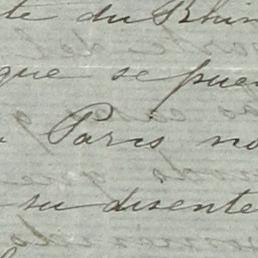 te du Rhin
que se pue
Paris no
su disente